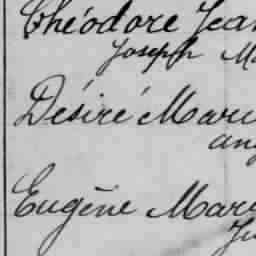 Théodore Jean
Joseph Ma
Désiré Marie
ang
Eugène Mari
Ju